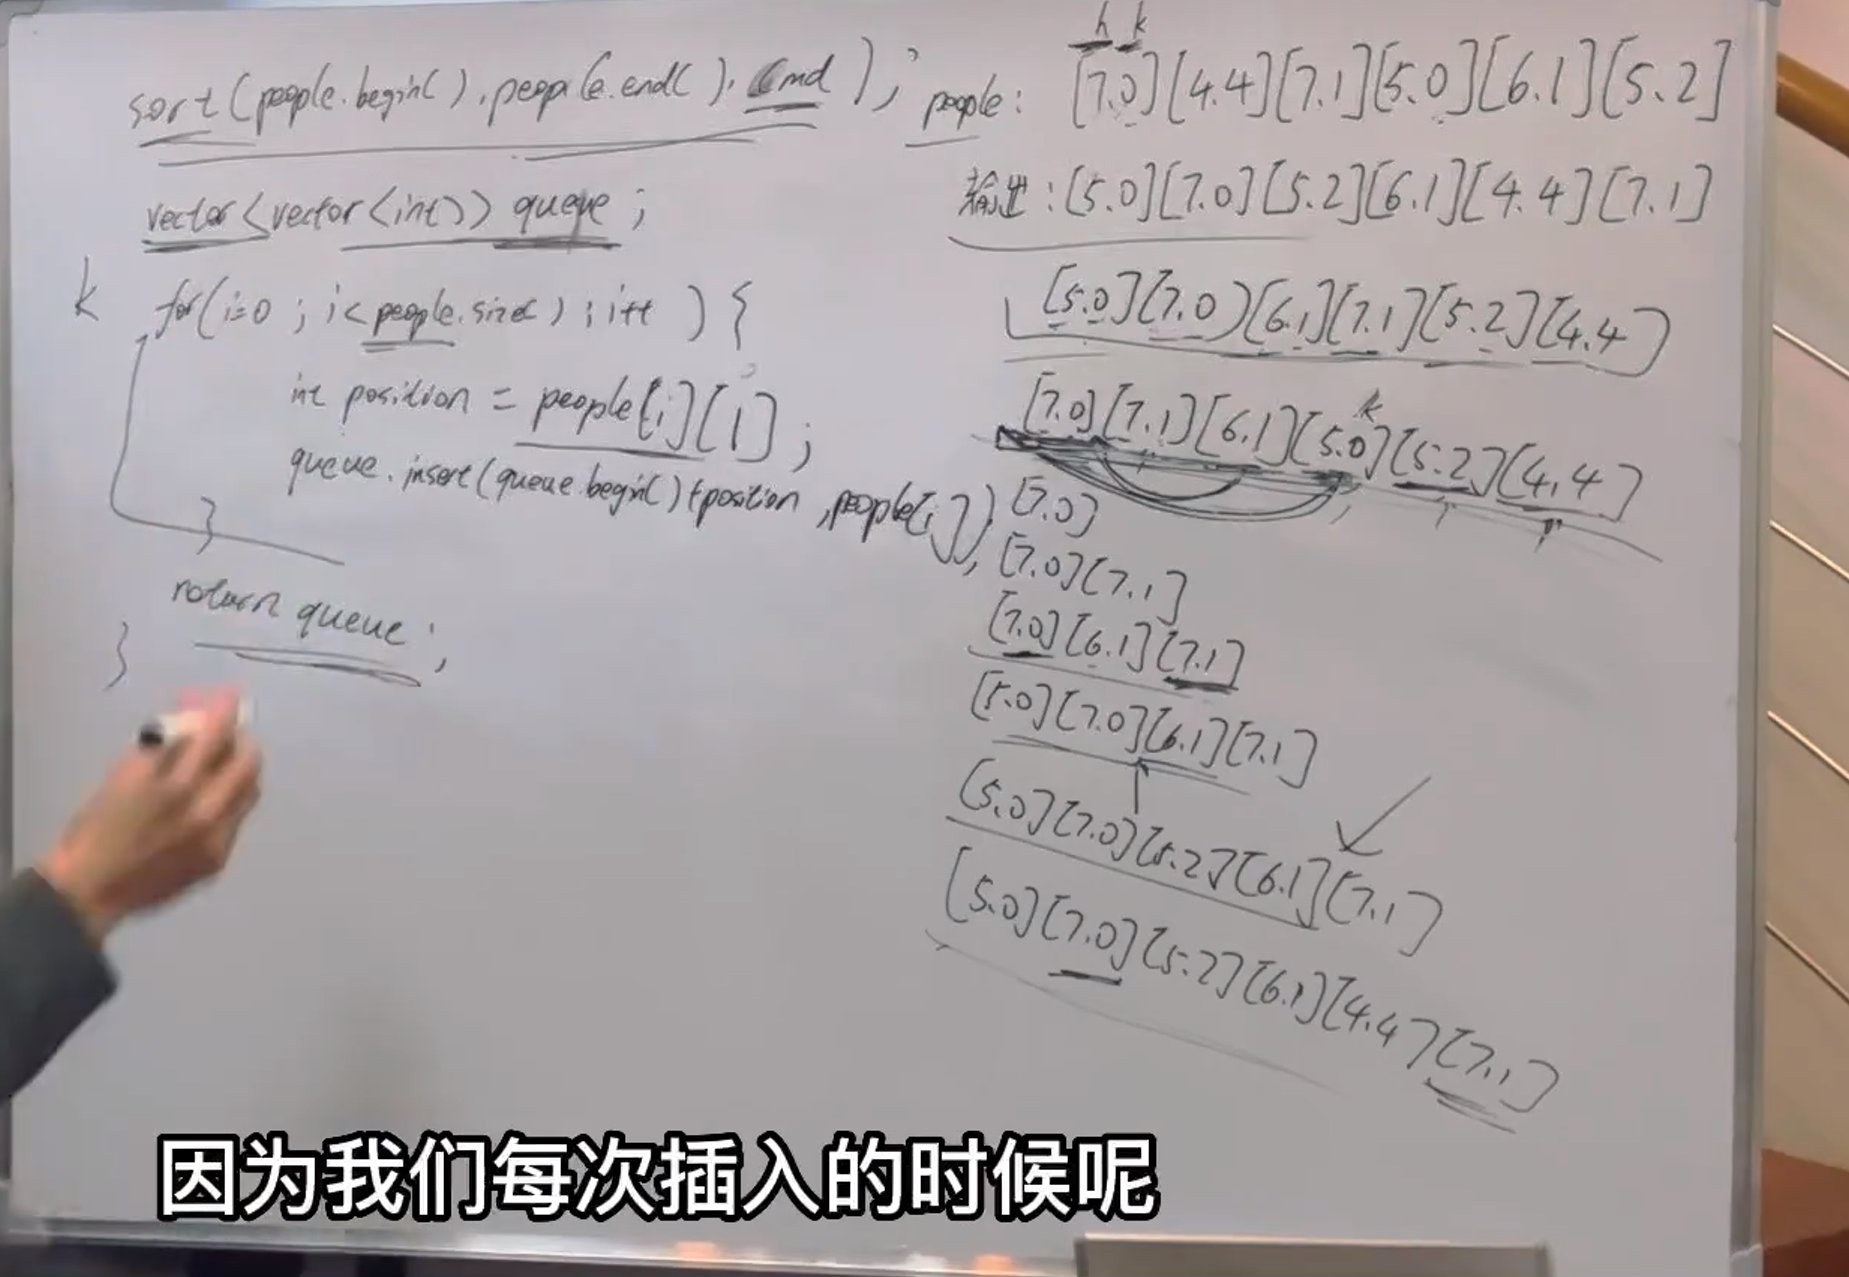 sort(people.begin(),people.end(),cmd);
vector<vector<int>> queue;
k
for(i=0;i<people.size();i++){
int position = people[i][1];
queue.insert(queue.begin()+position,people[i]);
}
return queue;
}
h k
people: [7.0][4.4][7.1][5.0][6.1][5.2]
输出:[5.0][7.0][5.2][6.1][4.4][7.1]
[5.0][7.0)[6.1][7.1][5.2][4.4]
k
[7.0][7.1][6.1][5.0][5.2][4.4]
[7.0]
[7.0][7.1]
[7.0][6.1][7.1]
[5.0][7.0][6.1][7.1]
[5.0][7.0][5.2][6.1][7.1]
[5.0][7.0][5.2][6.1][4.4][7.1]
因为我们每次插入的时候呢